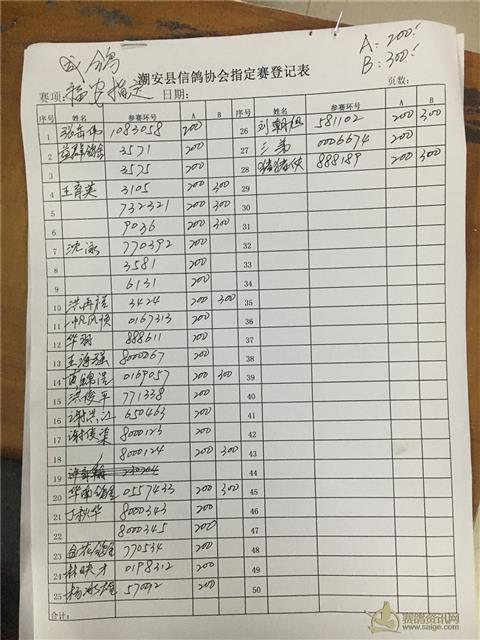 成鸽
A: 200.
B: 300.
潮安县信鸽协会指定赛登记表
赛项: 福安指定 日期: 页数:
序号 姓名 参赛环号 A B 序号 姓名 参赛环号 A B
1 1083058 200 26 刘朝旭 581102 200 300
2 益群鸽舍 3571 200 27 三弟 0006674 200
3 3575 200 28 猪猪侠 888189 200 300
4 王育英 3105 200 300 29
5 732321 200 300 30
6 9036 200 300 31
7 沈泳 770392 200 32
8 3581 200 33
9 6131 200 34
10 洪再 3424 200 300 35
11 一帆风顺 0167313 200 36
12 华 888611 200 37
13 王海强 8000267 200 38
14 黄锦浩 0169057 200 300 39
15 洪俊平 771338 200 40
16 谢洪江 650463 200 41
17 谢俊 8000123 200 42
18 8000124 200 300 43
19 44
20 华南鸽舍 0557433 200 300 45
21 丁秋华 8000343 200 46
22 8000345 200 47
23 鸽舍 770534 200 48
24 林映才 0198312 200 49
25 杨 57092 200 50
合计:
赛鸽资讯网
www.saige.com